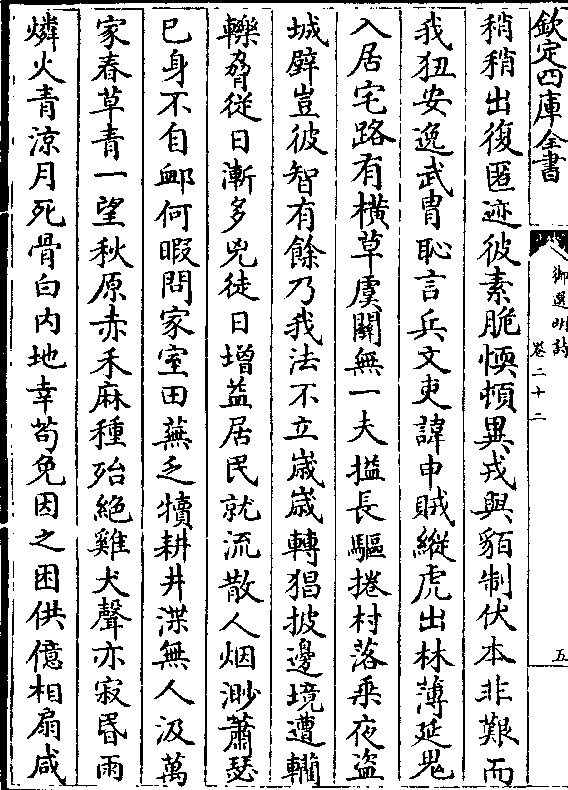 欽定四庫全書
御選明詩
卷二十二
五
稍稍出復匿迹彼素脆愞頓異戎與貊制伏本非艱而
我狃安逸武胄恥言兵文吏諱申賊縱虎出林薄延鬼
入居宅路有橫草虞關無一夫搤長驅捲村落乗夜盜
城壁豈彼智有餘乃我法不立嵗嵗轉猖披邊境遭轥
轢脅從日漸多兇徒日增益居民就流散人烟渺蕭瑟
已身不自䘏何暇問家室田蕪乏犢耕井渫無人汲萬
家春草青一望秋原赤禾麻種殆絶雞犬聲亦寂昬雨
燐火青涼月死骨白内地幸苟免因之困供億相扇咸